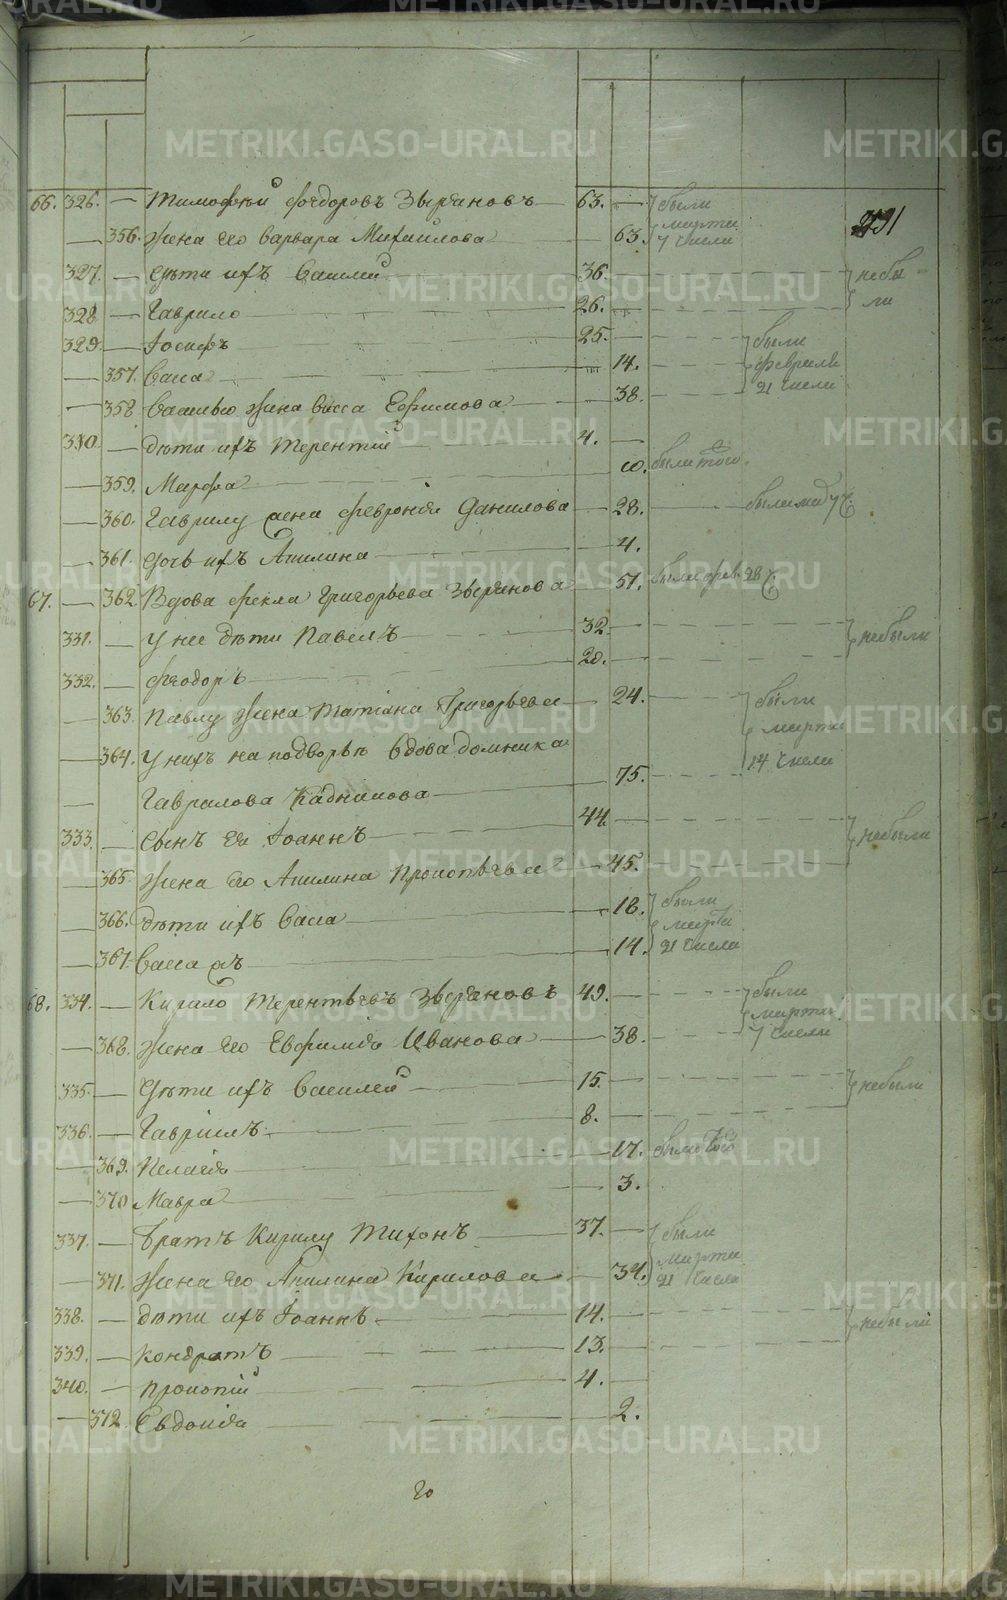 66. 326. — Тимофей Феодоровъ Зверяновъ 63. — были
— 356. жена его Варвара Михаилова — 63. марта 7 числа 231
327. — Дѣти ихъ Василей 36. небы
328 — Гаврило 26. ли
329. — Іосифъ 25. были
— 357. Васса 14. февраля
— 358 Василью жена Васса Ефимова — 38. 21 числа
330. — дѣти ихъ Терентий 4. —
— 359. Марфа 10. были того
— 360. Гаврилу жена Феврония Данилова — 28.
— 361. дочь ихъ Акилина — 4.
67. — 362. Вдова Фекла Григорьева Зверянова — 51. были фев. 28 ч.
331. — У нее дѣти Павелъ 32. небыли
332. — Феодоръ 20. —
— 363. Павлу жена Татіана Григорьева — 24. были
— 364. У нихъ на подворьѣ вдова домника марта
— Гаврилова Кадникова — 75. 14 числа
333. — Сынъ ея Іоаннъ 44. — небыли
— 365. жена его Акилина Прокопьева — 45.
— 366. дѣти ихъ Васса — 18. были марта
— 367. Васса жъ — 14. 21 числа
68. 334. — Кирило Терентьевъ Зверяновъ 49. — были марта
— 368. жена его Евфимія Иванова — 38. 7 числа
335. — Дѣти ихъ Василей 15. — небыли
336. — Гавріилъ 8. —
— 369. Пелагія — 17. были того
— 370 Мавра — 3.
337. — Братъ Кирилу Тихонъ 37. — были
— 371. жена его Акилина Кирилова — 34. марта 21 числа
338. — дѣти ихъ Іоаннъ 14. — небыли
339. — Кондратъ 13. —
340. — Прокопій 4. —
— 372. Евдокія — 2.
METRIKI.GASO-URAL.RU